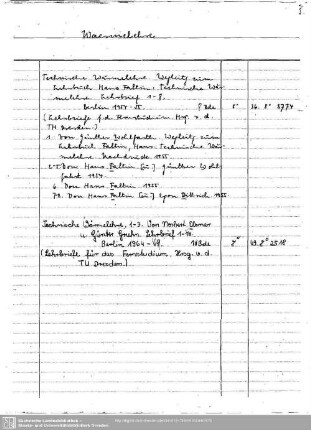 Waermelehre
Technische Wärmelehre. Wegleitg. zum
Lehrbuch Hans Faltin: Technische Wär-
melehre Lehrbrief 1-8.
Berlin 1954-55. 8 Bde 8° 36. 8° 8774
(Lehrbriefe f. d. Fernstudium. Hrsg. v. d.
TH Dresden.)
1. Von Günther Wohlfarth. Wegleitg. zum
Lehrbuch Faltin, Hans: Technische Wär-
melehre. Nachdruck 1955.
Von Hans Faltin [u.] Günther Wohl-
farth. 1954.
6. Von Hans Faltin. 1955.
Von Hans Faltin [u.] Egon Dittrich. 1955.
Technische Wärmelehre. 1-3. Von Norbert Elsner
u. Günter Lehrbrief
Berlin 1964-69. Bde 8° 49. 8° 2518
(Lehrbriefe für das Fernstudium. Hrsg. v. d.
TU Dresden.)
Sächsische Landesbibliothek -
Staats- und Universitätsbibliothek Dresden